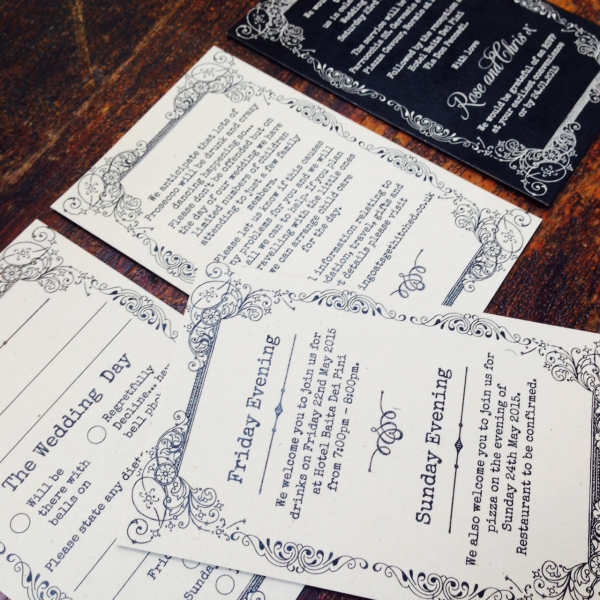 We would
Wedding
Saturday 23rd
The service will be
Followed by the reception
Hotel Baita Dei Pini
Via Don
with love
Rose and Chris x
We would be grateful of an RSVP
at your earliest convenience
or by 24.01.2015
We anticipate that lots of
Prosecco will be drunk and crazy
dancing happening so...
Please don't be offended but on
the day of our wedding we have
limited numbers of children
attending to just a few family
members.
Please let us know if this causes
any problems for you and we will
do all we can to help. If you plan
travelling with the little ones
we can arrange child care
for the day.
l information relating to
dation, travel, gifts and
t details please visit
ingoatsgethitched.co.uk
The Wedding Day
Will be
there with
bells on
Regretfully
Decline... ha
bell ph
Please state any diet
Frid
Sunday
Friday Evening
We welcome you to join us for
drinks on Friday 22nd May 2015
at Hotel Baita Dei Pini
from 7:00pm - 9:00pm.
Sunday Evening
We also welcome you to join us for
pizza on the evening of
Sunday 24th May 2015.
Restaurant to be confirmed.